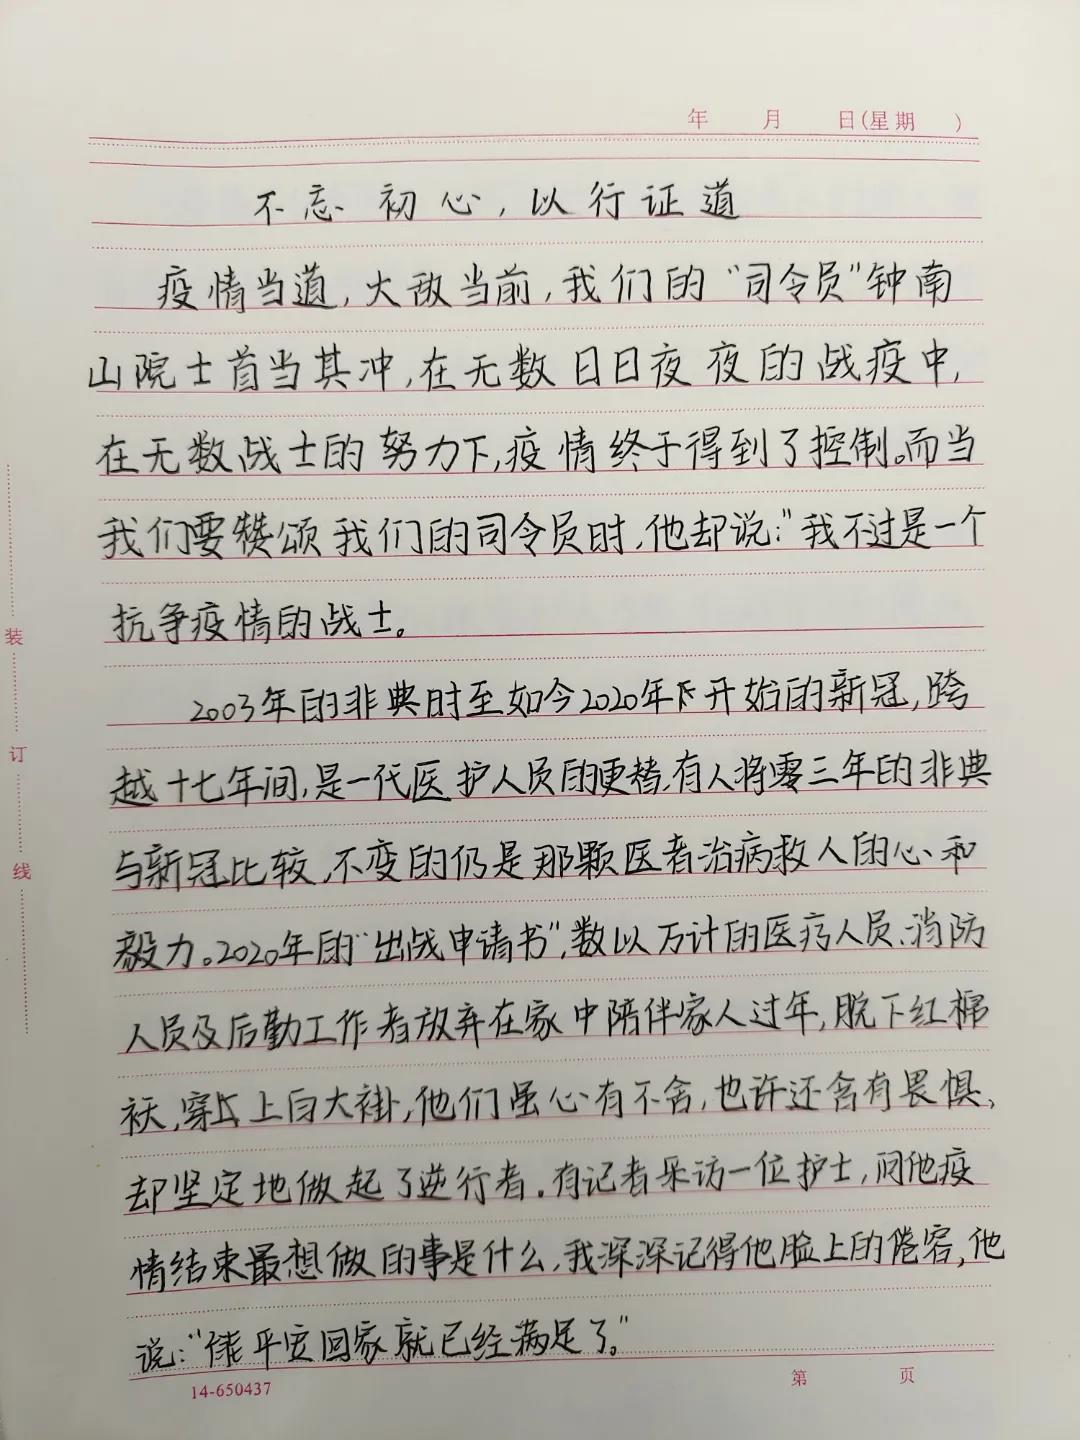 年 月 日(星期 )
不忘初心,以行证道
疫情当道,大敌当前,我们的“司令员”钟南
山院士首当其冲,在无数日日夜夜的战疫中,
在无数战士的努力下,疫情终于得到了控制。而当
我们要赞颂我们的司令员时,他却说:“我不过是一个
抗争疫情的战士。
2003年的非典时至如今2020年开始的新冠,跨
越十七年间,是一代医护人员的更替,有人将零三年的非典
与新冠比较,不变的仍是那颗医者治病救人的心和
毅力。2020年的“出战申请书”,数以万计的医疗人员、消防
人员及后勤工作者放弃在家中陪伴家人过年,脱下红棉
袄,穿上白大褂,他们虽心有不舍,也许还含有畏惧、
却坚定地做起了逆行者。有记者采访一位护士,问他疫
情结束最想做的事是什么,我深深记得他脸上的倦容,他
说:“能平安回家就已经满足了。”
装
订
线
14-650437
第 页